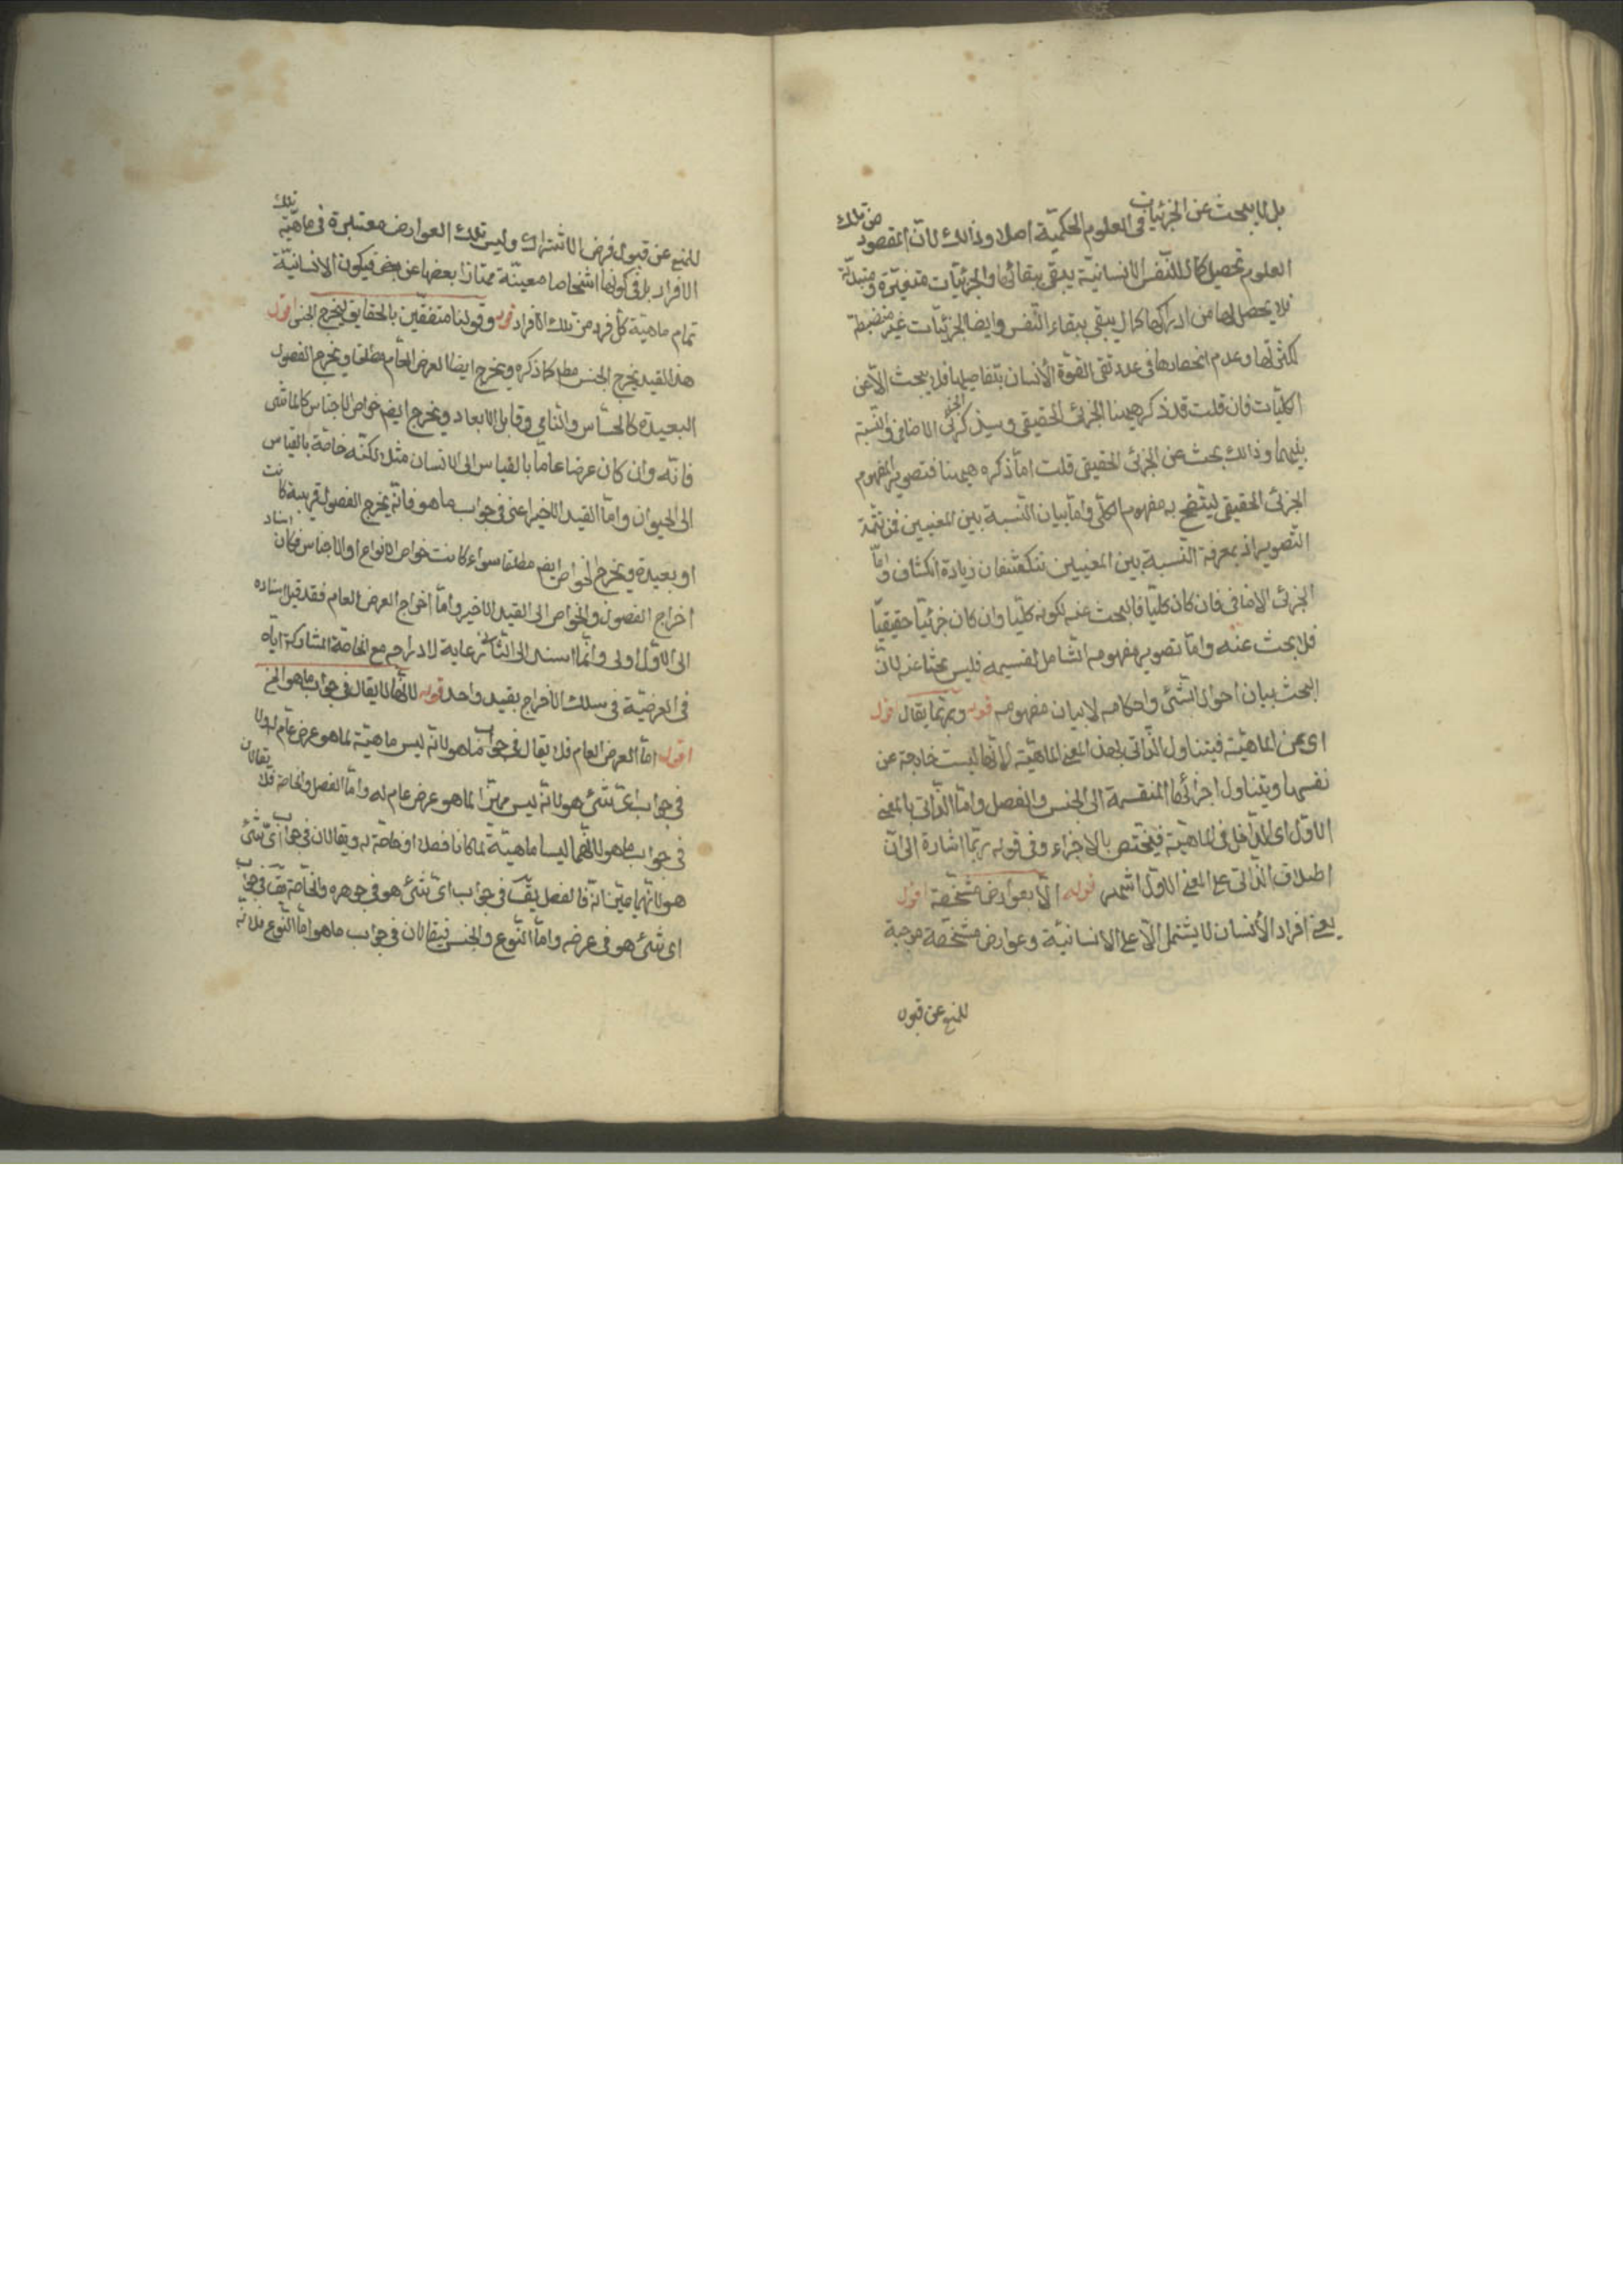 بل لا يبحث عن الجزئيات في العلوم الحكمية اصلا وذالك لان المقصود من تلك
العلوم تحصيل كمال للنفس الانسانية يبقى ببقائها والجزئيات متغيرة ومتبدلة
فلا يحصل لها من ادراكها كمال يبقى ببقاء النفس وايضا الجزئيات غير منضبطة
لكثرتها وعدم انحصارها في عدد تفى القوة الأنسان بتفاصيلها فلا يبحث الا عن
الكليات فان قلت قد ذكر هيهنا الجزئى الحقيقى وسيذكر الجزئى الاضافى والنسبة
بينهما وذالك بحث عن الجزئى الحقيقى قلت اما ذكره هيهنا فتصوير لمفهوم
الجزئى الحقيقى ليتضح به مفهوم الكلى واما بيان النسبة بين المعنيين فمن تتمة
التصوير اذ بمعرفة النسبة بين المعنيين تنكشفان زيادة انكشاف واما
الجزئى الاضافى فان كان كليا فالبحث عنه لكونه كليا وان كان جزئيا حقيقيا
فلا بحث عنه واما تصوير مفهومه الشامل لقسيمه فليس بحثا عنه لان
البحث بيان احوال الشئ واحكامه لا بيان مفهومه قوله وربما يقال اقول
اى عن الماهية فيتناول الذاتى بهذا المعنى الماهية لانها ليست خارجة عن
نفسها ويتناول اجزائها المنقسمة الى الجنس والفصل واما الذاتى بالمعنى
الاول اى الداخل فى الماهية فيختص بالاجزاء وفى قوله ربما اشارة الى ان
اطلاق الذاتى على المعنى الاول اشهر قوله الا بعوارض مشخصة اقول
يعنى افراد الأنسان لا يشتمل الا على الانسانية وعوارض مشخصة موجبة
للمنع عن قبول
للمنع عن قبول فرض الاشتراك وليس تلك العوارض معتبرة فى ماهية تلك
الافراد بل فى كونها اشخاصا معينة ممتازا بعضها عن بعض فيكون الانسانية
تمام ماهية كل فرد من تلك الافراد قوله وقولنا متفقين بالحقايق ليخرج الجنس اقول
هذا القيد يخرج الجنس مطلقا كما ذكره ويخرج ايضا العرض العام مطلقا ويخرج الفصول
البعيدة كالحساس والنامي وقابل الابعاد ويخرج ايضم خواص الاجناس كالماشى
فانه وان كان عرضا عاما بالقياس الى الانسان مثلا لكنه خاصة بالقياس
الى الحيوان واما القيد الاخير اعنى فى جواب ما هو فانه يخرج الفصول قريبة كانت
او بعيدة ويخرج الخواص ايضم مطلقا سواء كانت خواص الانواع او الاجناس فكان اسناد
اخراج الفصول والخواص الى القيد الاخير واما اخراج العرض العام فقد قيل اسناده
الى الاول اولى وانما اسند الى الثانى رعاية لادراجه مع الخاصة المشاركة اياه
فى العرضية فى سلك الاخراج بقيد واحد قوله لانها لا يقال فى جواب ما هو الخ
اقول اما العرض العام فلا يقال فى جواب ما هو لانه ليس ماهية لما هو عرض عام له ولا
فى جواب اى شئ هو لانه ليس مميزا لما هو عرض عام له واما الفصل والخاصة فلا يقالان
فى جواب ما هو لانهما ليسا ماهية لما كانا فصلا او خاصة له ويقالان فى جواب اى شئ
هو لانهما مميزان له فالفصل يق فى جواب اى شئ هو فى جوهره والخاصة يق فى جواب
اى شئ هو فى عرضه واما النوع والجنس فيقالان فى جواب ما هو اما النوع فلانه